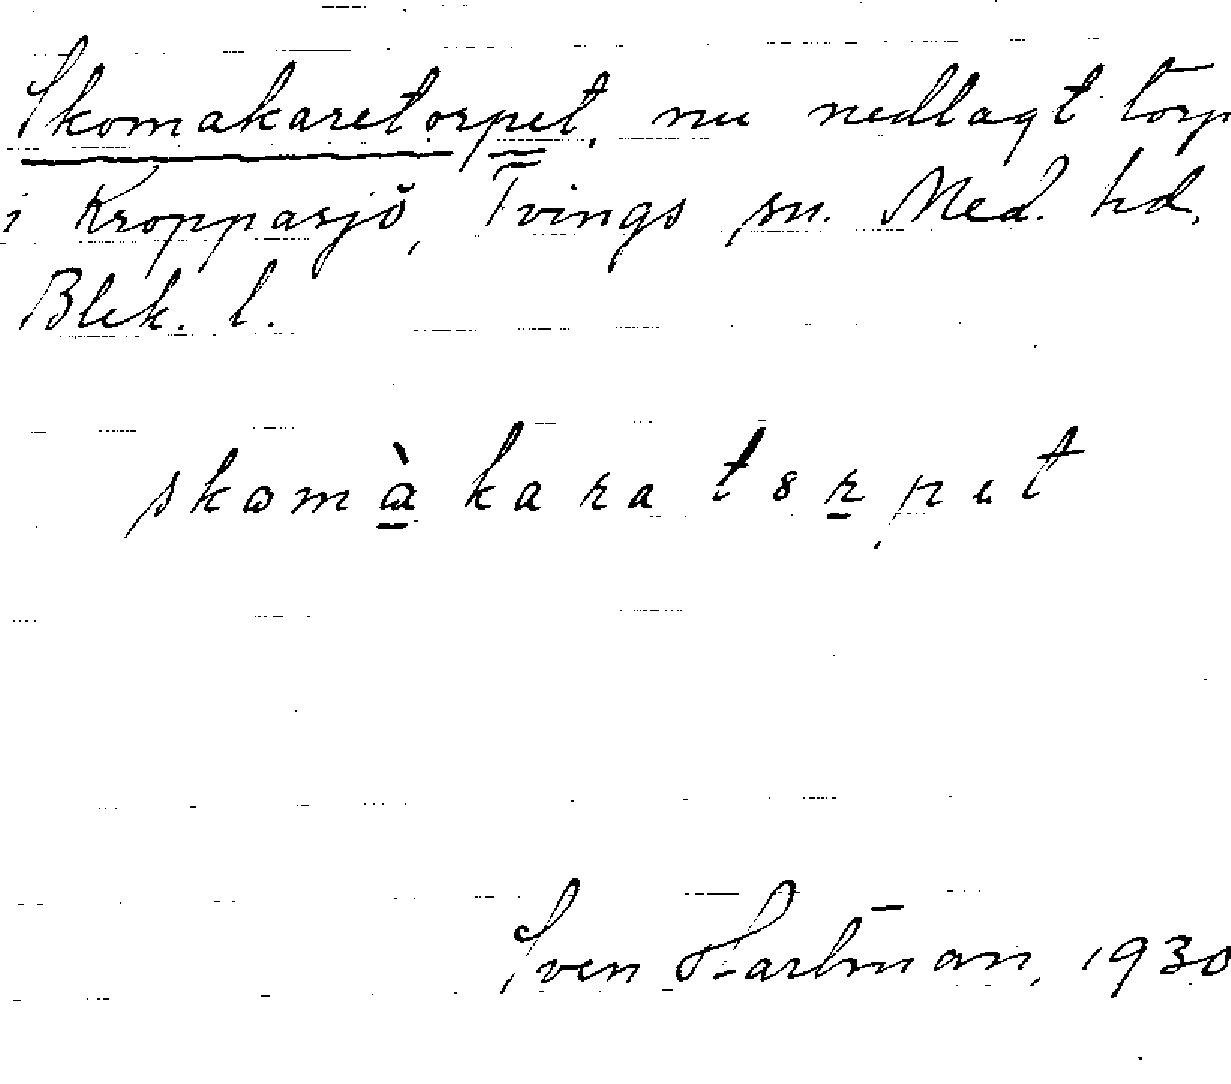 Skomakaretorpet, nu nedlagt torp
i Kroppasjö, Tvings sn. Med. hd.
Blek. l.
skomàkara torpet
Sven Hartman, 1930